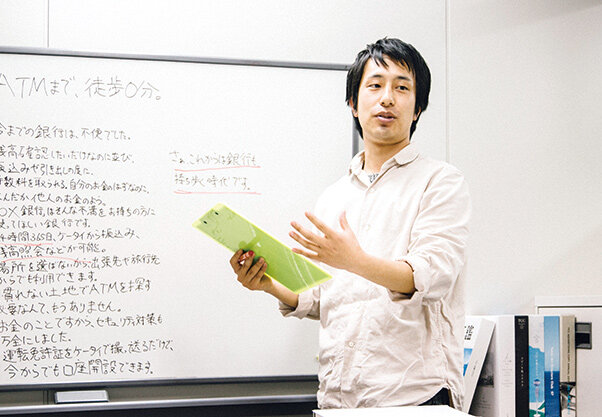 ATMまで、徒歩0分。
今までの銀行は、不便でした。
残高を確認したいだけなのに並び、
振込みや引き出しの度に、
手数料を取られる。自分のお金のはずなのに、
なんだか他人のお金のよう。
○×銀行は、そんな不満をお持ちの方に
使ってほしい銀行です。
24時間365日、ケータイから振込み、
残高照会などが可能。
場所を選ばないから、出張先や旅行先
からでも利用できます。
慣れない土地でATMを探す
必要なんて、もうありません。
お金のことですから、セキュリティ対策も
万全にしました。
運転免許証をケータイで撮、送るだけで、
今からでも口座開設できます。
さぁ、これからは銀行も
持ち歩く時代です。